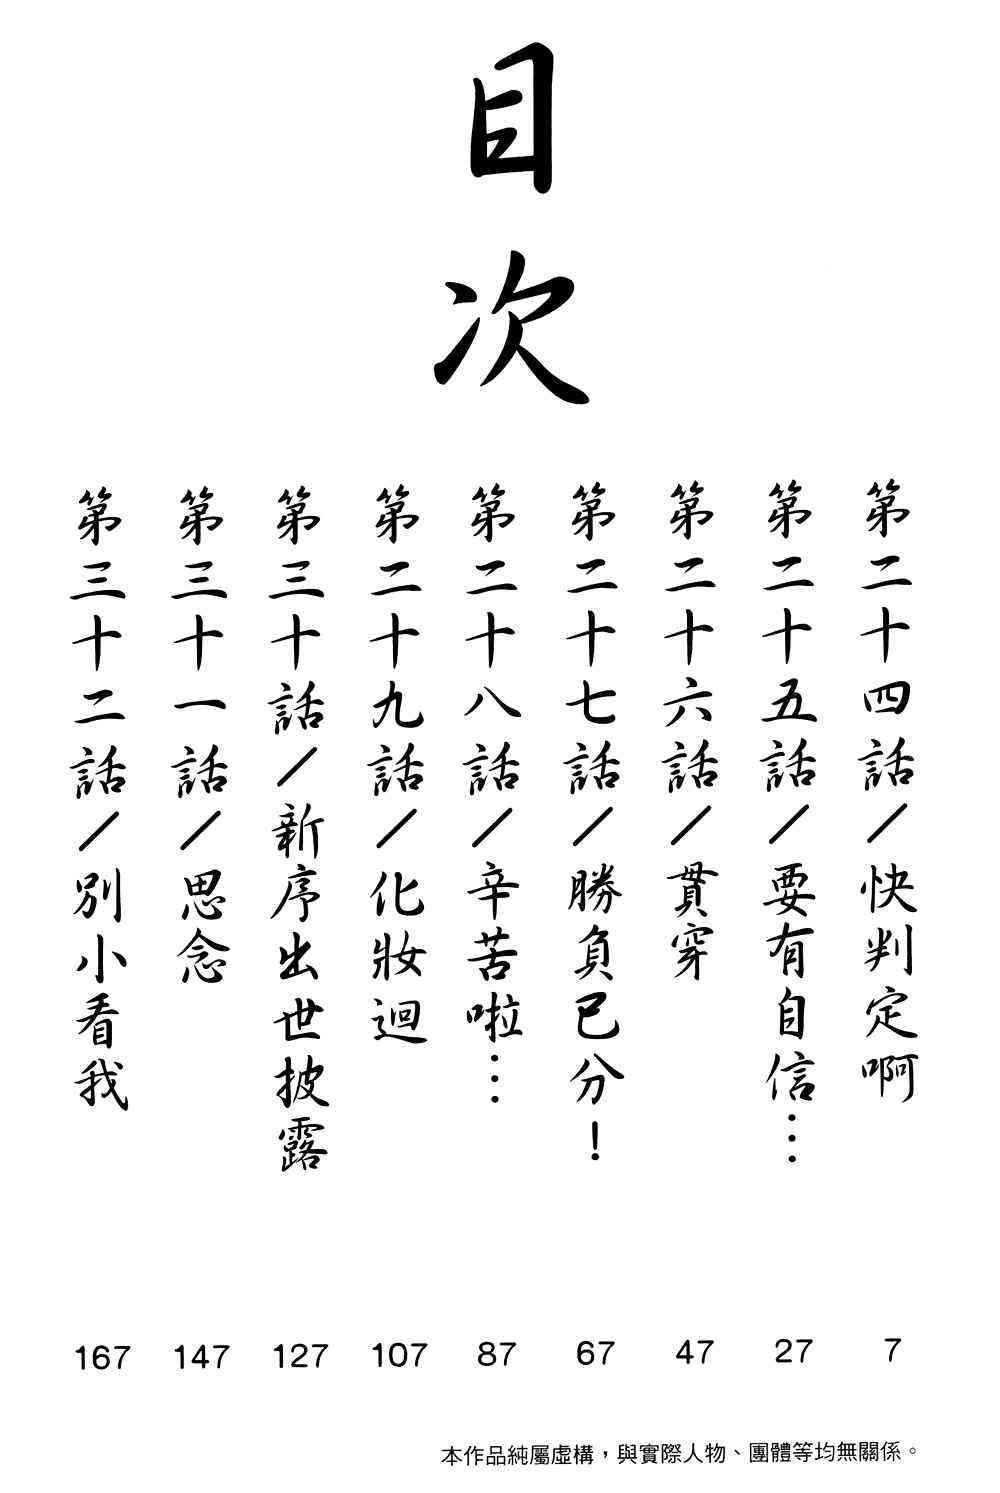 目次
第二十四話／快判定啊 7
第二十五話／要有自信… 27
第二十六話／貫穿 47
第二十七話／勝負已分！ 67
第二十八話／辛苦啦… 87
第二十九話／化妝迴 107
第三十話／新序出世披露 127
第三十一話／思念 147
第三十二話／別小看我 167
本作品純屬虛構，與實際人物、團體等均無關係。